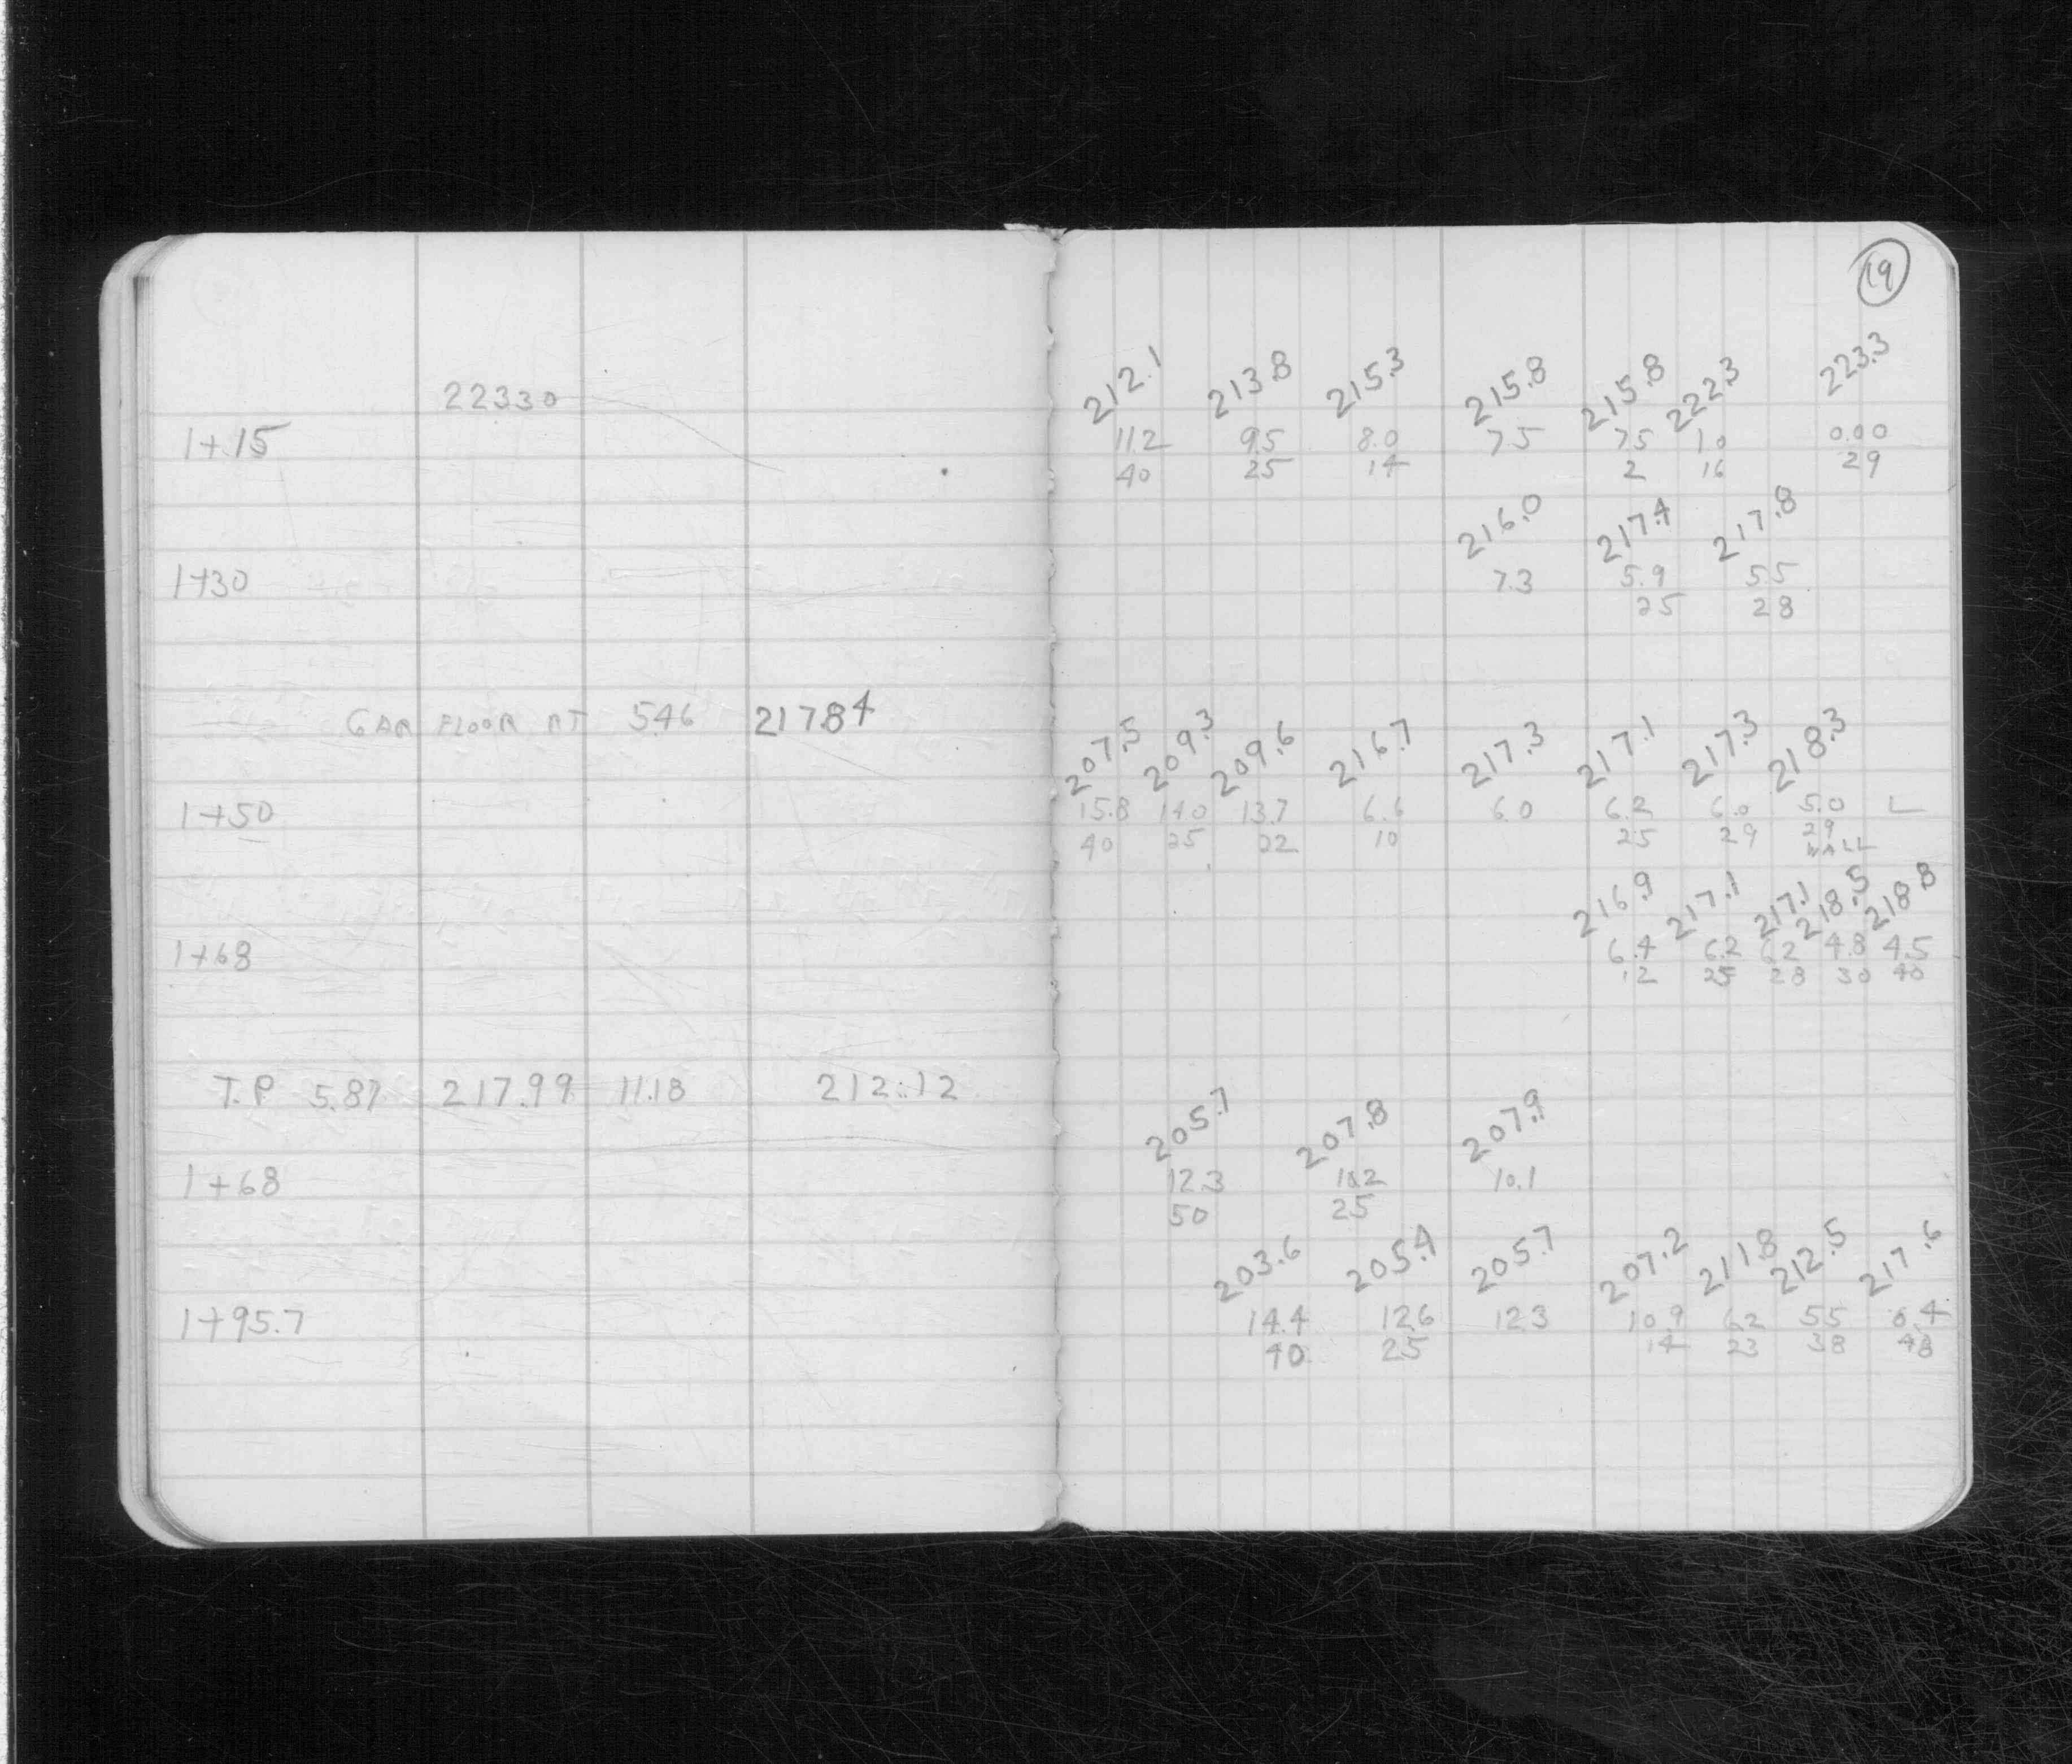 19
22330
212.1 213.8 215.3 215.8 215.8 222.3 223.3
1+15 11.2 9.5 8.0 7.5 7.5 1.0 0.00
40 25 14 2 16 29
216.0 217.4 217.8
1+30 7.3 5.9 5.5
25 28
GAR FLOOR RT 5.46 217.84
207.5 209.3 209.6 216.7 217.3 217.1 217.3 218.3
1+50 15.8 14.0 13.7 6.6 6.0 6.2 6.0 5.0
40 25 22 10 25 29 29
WALL
216.9 217.1 217.1 218.5 218.8
1+68 6.4 6.2 6.2 4.8 4.5
12 25 28 30 40
T.P 5.87 217.99 11.18 212.12
205.7 207.8 207.9
1+68 12.3 10.2 10.1
50 25
203.6 205.4 205.7 207.2 211.8 212.5 217.6
1+95.7 14.4 12.6 12.3 10.9 6.2 5.5 0.4
40 25 14 23 38 48